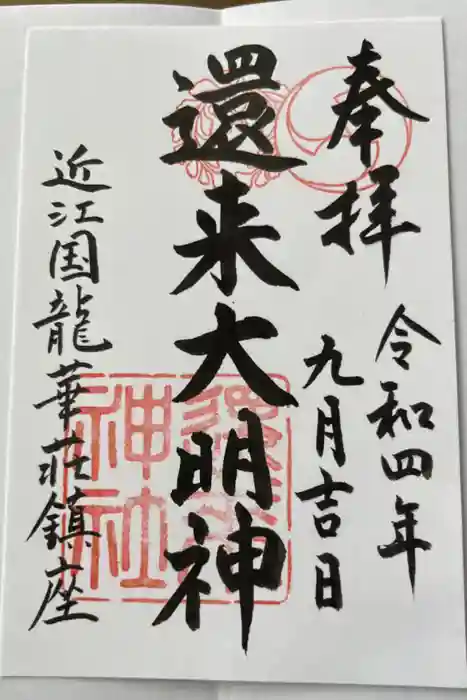 奉拝
令和四年
九月吉日
還来大明神
近江国龍華荘鎮座
還来神社